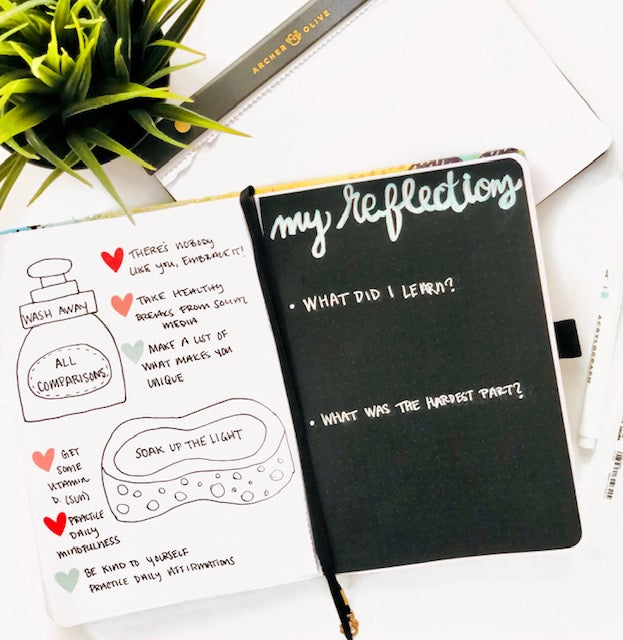 ARCHER & OLIVE
my reflections
THERE'S NOBODY
LIKE YOU, EMBRACE IT!
WASH AWAY
ALL
COMPARISONS!
TAKE HEALTHY
BREAKS FROM SOCIAL
MEDIA
MAKE A LIST OF
WHAT MAKES YOU
UNIQUE
SOAK UP THE LIGHT
GET
SOME
VITAMIN
D. (SUN)
PRACTICE
DAILY
MINDFULNESS
BE KIND TO YOURSELF
PRACTICE DAILY AFFIRMATIONS
• WHAT DID I LEARN?
• WHAT WAS THE HARDEST PART?
ACRYLOGRAPH